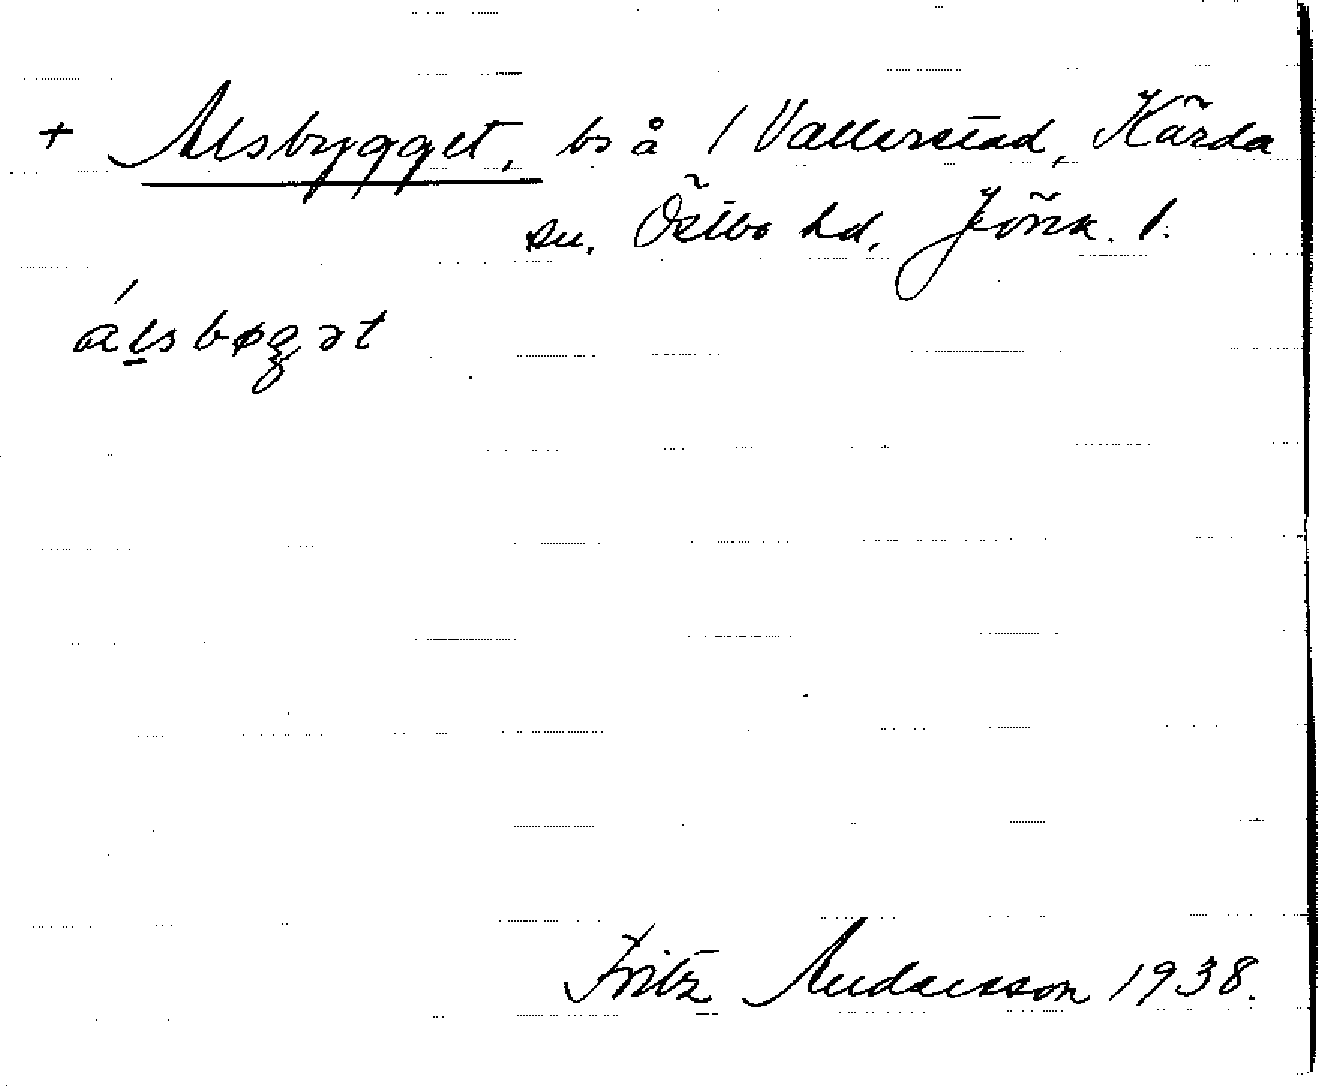 + Alsbygget, bs å 1 Vallerstad, Kärda
sn. Östbo hd. Jönk. l.
álsbøgət
Fritz Andersson 1938.